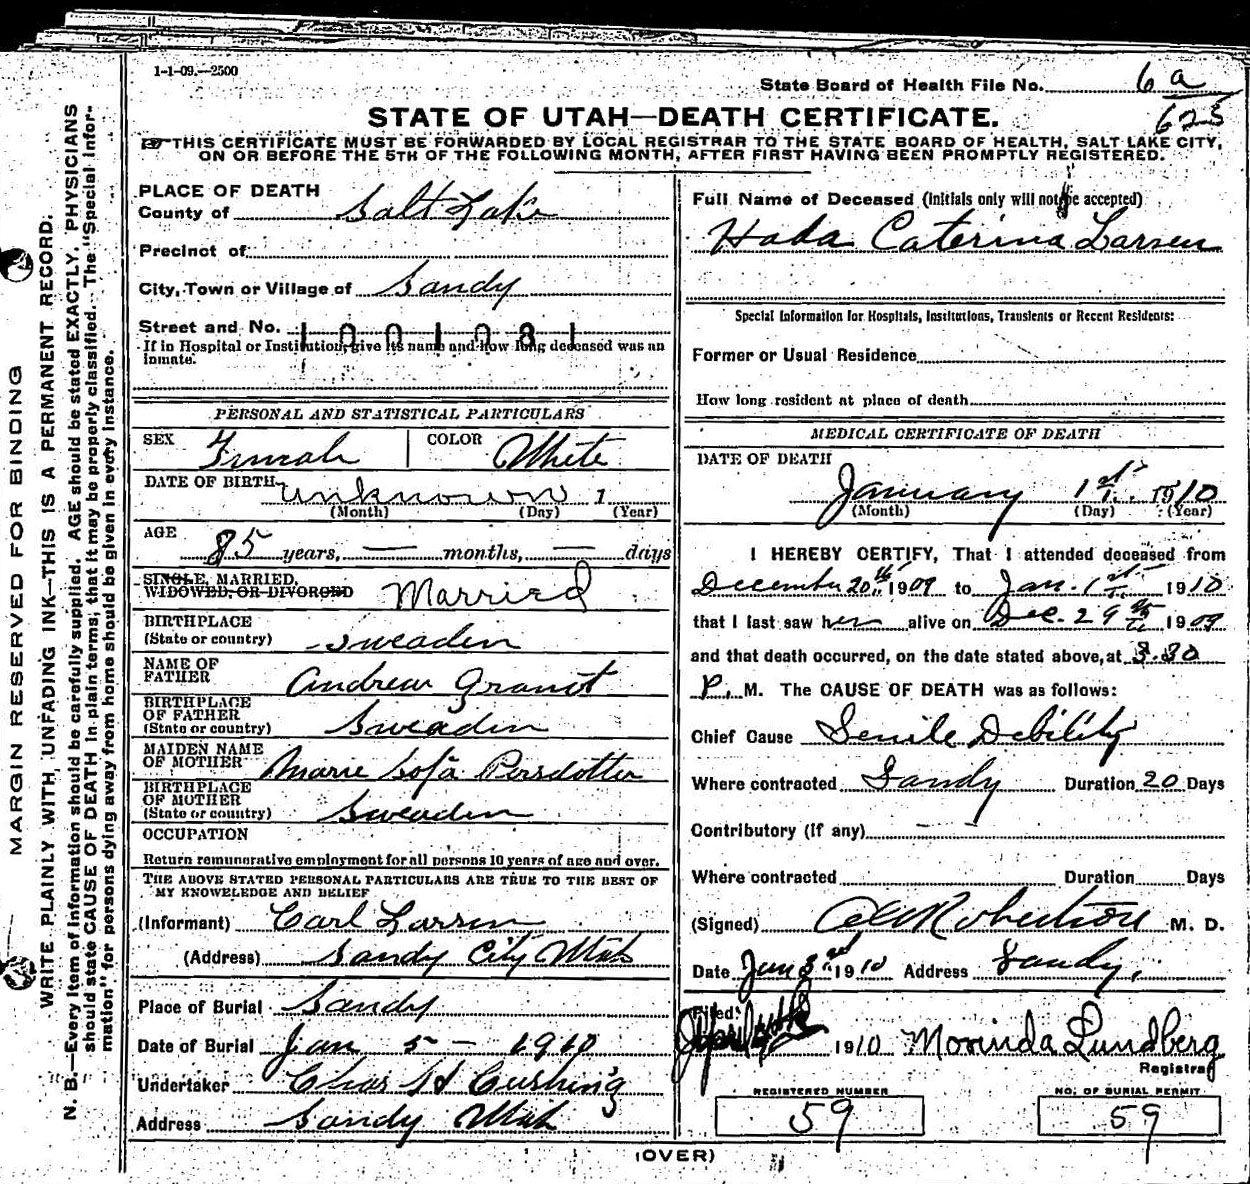 1-1-09.—2500
State Board of Health File No. 6 a
625
STATE OF UTAH—DEATH CERTIFICATE.
☞ THIS CERTIFICATE MUST BE FORWARDED BY LOCAL REGISTRAR TO THE STATE BOARD OF HEALTH, SALT LAKE CITY,
ON OR BEFORE THE 5TH OF THE FOLLOWING MONTH, AFTER FIRST HAVING BEEN PROMPTLY REGISTERED.
MARGIN RESERVED FOR BINDING
WRITE PLAINLY WITH UNFADING INK—THIS IS A PERMANENT RECORD.
N. B.—Every item of information should be carefully supplied. AGE should be stated EXACTLY. PHYSICIANS
should state CAUSE OF DEATH in plain terms, that it may be properly classified. The "Special Infor-
mation" for persons dying away from home should be given in every instance.
PLACE OF DEATH
County of Salt Lake
Precinct of
City, Town or Village of Sandy
Street and No. 1001081
If in Hospital or Institution, give its name and how long deceased was an
inmate.
PERSONAL AND STATISTICAL PARTICULARS
SEX Female COLOR White
DATE OF BIRTH unknown 1
(Month) (Day) (Year)
AGE 85 years, — months, — days
SINGLE, MARRIED,
WIDOWED, OR DIVORCED Married
BIRTHPLACE
(State or country) Sweaden
NAME OF
FATHER Andrew Granot
BIRTHPLACE
OF FATHER
(State or country) Sweaden
MAIDEN NAME
OF MOTHER Marie Sofa Persdotter
BIRTHPLACE
OF MOTHER
(State or country) Sweaden
OCCUPATION
Return remunerative employment for all persons 10 years of age and over.
THE ABOVE STATED PERSONAL PARTICULARS ARE TRUE TO THE BEST OF
MY KNOWELEDGE AND BELIEF
(Informant) Carl Larsen
(Address) Sandy City Utah
Place of Burial Sandy
Date of Burial Jan 5 — 1910
Undertaker Chas H Cushing
Address Sandy Utah
Full Name of Deceased (Initials only will not be accepted)
Hada Caterina Larsen
Special Information for Hospitals, Institutions, Transients or Recent Residents:
Former or Usual Residence
How long resident at place of death
MEDICAL CERTIFICATE OF DEATH
DATE OF DEATH
January 1st 1910
(Month) (Day) (Year)
I HEREBY CERTIFY, That I attended deceased from
December 20th 1909 to Jan. 1st 1910
that I last saw her alive on Dec. 29th 1909
and that death occurred, on the date stated above, at 3.30
P. M. The CAUSE OF DEATH was as follows:
Chief Cause Senile Debility
Where contracted Sandy Duration 20 Days
Contributory (if any) — —
Where contracted Duration Days
(Signed) Robertson M. D.
Date Jan 3rd 1910 Address Sandy,
Filed: 1910 Morinda Lundberg
Registrar
REGISTERED NUMBER
59
NO. OF BURIAL PERMIT
59
(OVER)